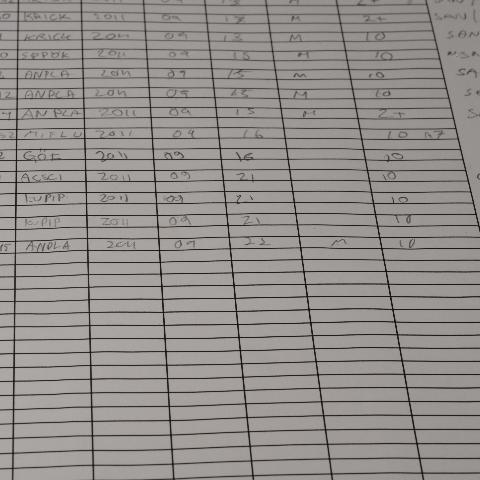 KRICK 2011 09 13 M 2+ SAN
KRICK 2011 09 13 M 10 SAN
SPPOK 2011 09 15 M 10
ANPLA 2011 09 15 M 10 SA
ANPLA 2011 09 15 M 10
ANPLA 2011 09 15 M 2+
MIFLU 2011 09 16 10
GÖK 2011 09 16 10
ACSCI 2011 09 21 10
LUPIP 2011 09 21 10
LUPIP 2011 09 21 10
ANPLA 2011 09 22 M 10